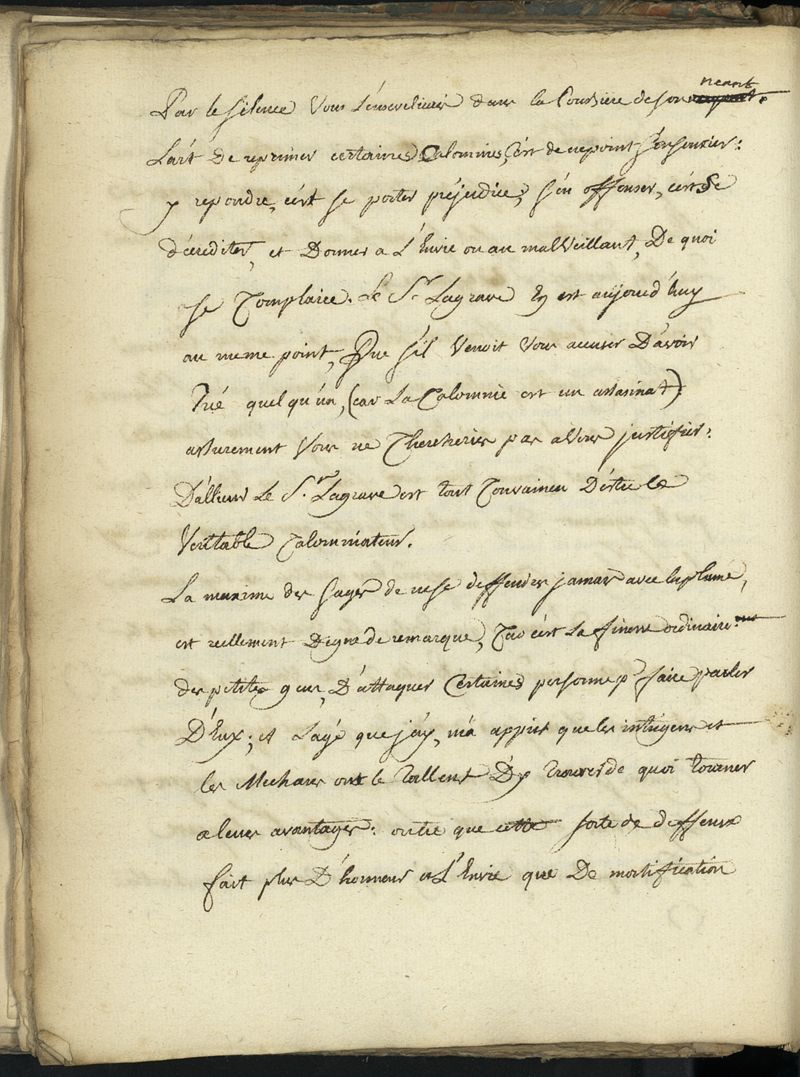 neant
Par le silence Vous l'enseveliriés dans la Poussiere de son
L'art de reprimer certaines Calomnies, c'est de ne point s'en soucier:
y repondre, c'est se porter préjudice; s'en offenser, c'est se
décrediter, et Donner a L'Envie ou au malVeillant, De quoi
se Complaire. Le Sr. Lagrave En est aujourd'huy
au meme point, Que s'il Venoit Vous accuser D'avoir
Tué quelqu'un, (car La Calomnie est un assasinat)
assurement Vous ne Chercheriés pas a Vous justifier:
D'allieurs Le Sr. Lagrave est tout Convaincu D'étre le
Veritable Calomniateur.
La maxime des sages de ne se deffendre jamais avec la plume,
est reellement Digne de remarque, Car c'est La finesse ordinaire
des petites gens, D'attaquer Certaines personnes pr. faire parler
D'Eux; et L'agé que j'ay, m'a appris que les intrigens et
les Mechans ont le Tallent D'y trouver de quoi tourner
a leurs avantages: outre que cette sorte de deffense
fait plus D'honneur a L'Envie que De mortification